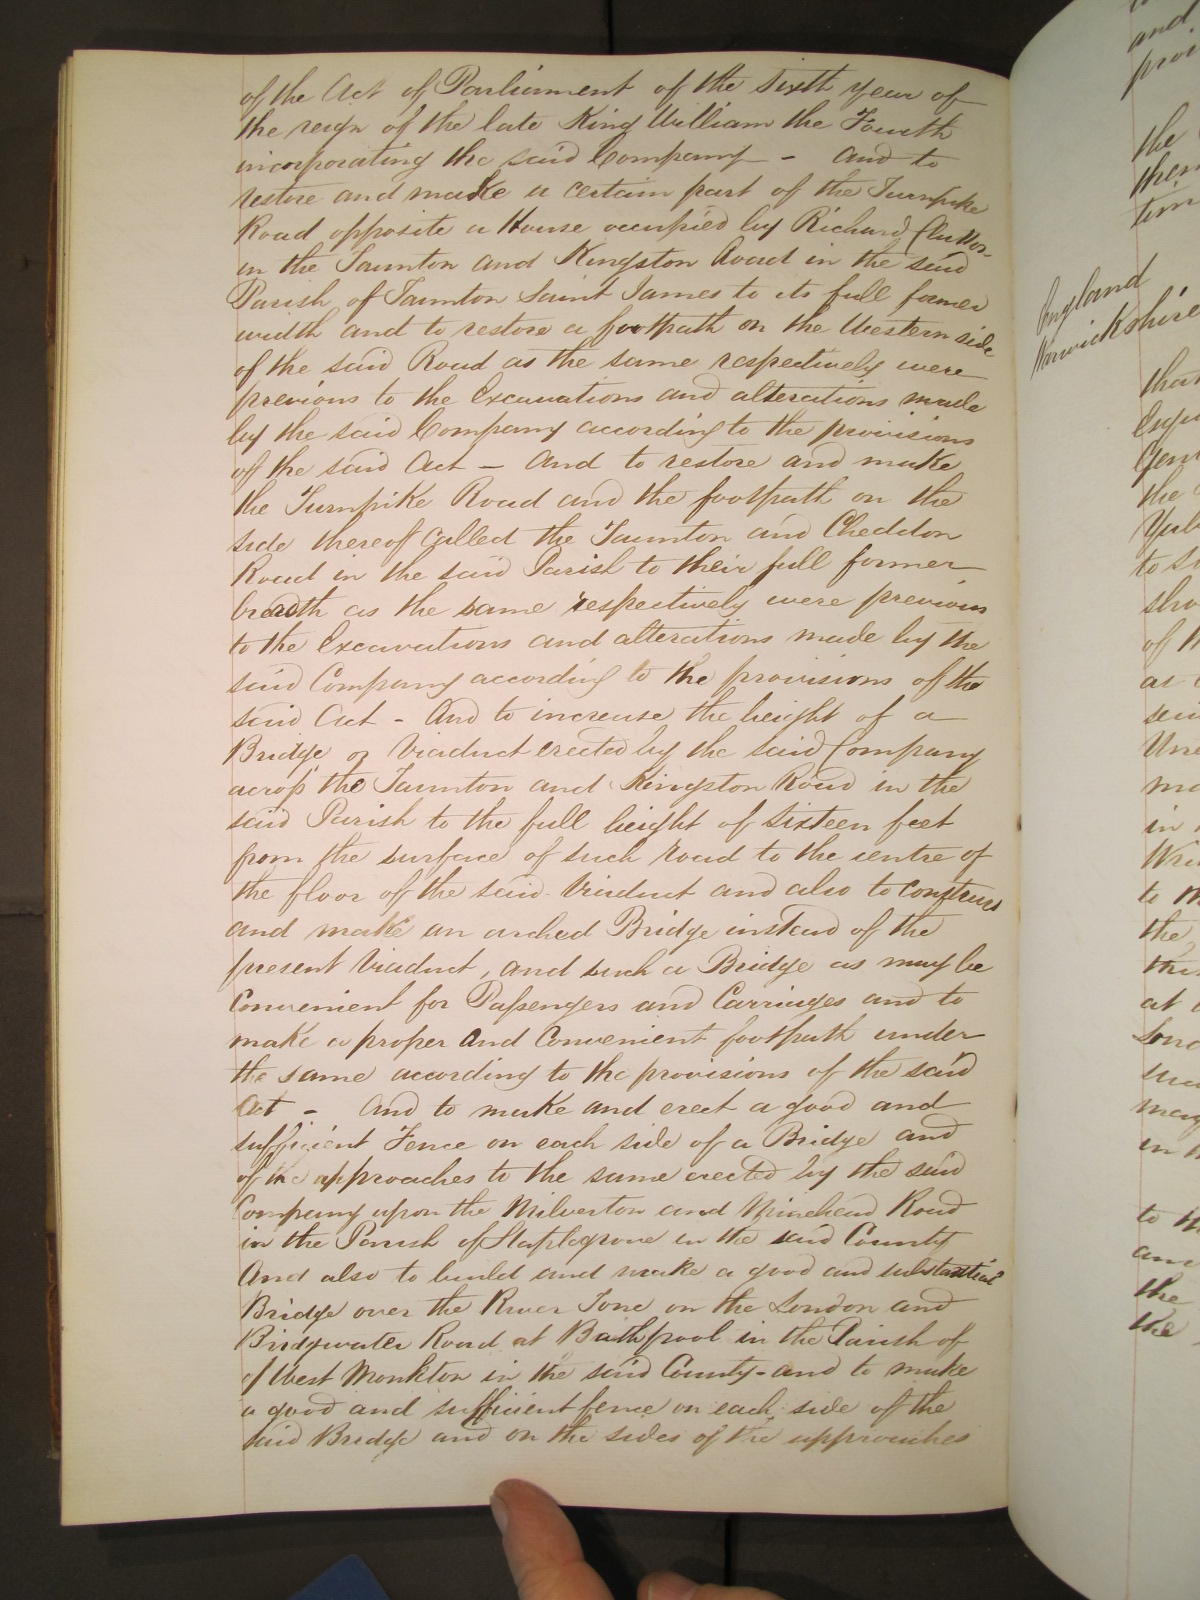 of the Act of Parliament of the sixth year of
the reign of the late King William the Fourth
incorporating the said Company - And to
restore and make a certain part of the Turnpike
Road opposite a House occupied by Richard
in the Taunton and Kingston Road in the said
Parish of Taunton Saint James to its full former
width and to restore a footpath on the Western side
of the said Road as the same respectively were
previous to the Excavations and alterations made
by the said Company according to the provisions
of the said Act - And to restore and make
the Turnpike Road and the footpath on the
side thereof Called the Taunton and Cheddon
Road in the said Parish to their full former
breadth as the same respectively were previous
to the Excavations and alterations made by the
said Company according to the provisions of the
said Act - And to increase the height of a
Bridge or Viaduct erected by the said Company
across the Taunton and Kingston Road in the
said Parish to the full height of sixteen feet
from the surface of such road to the centre of
the floor of the said Viaduct and also to construct
and make an arched Bridge instead of the
present Viaduct, and such a Bridge as may be
Convenient for Passengers and Carriages and to
make a proper and Convenient footpath under
the same according to the provisions of the said
Act - And to make and erect a good and
sufficient Fence on each side of a Bridge and
of the approaches to the same erected by the said
Company upon the Milverton and Minehead Road
in the Parish of Staplegrove in the said County
And also to build and make a good and substantial
Bridge over the River Tone on the London and
Bridgwater Road at Bathpool in the Parish of
of West Monkton in the said County - and to make
a good and sufficient fence on each side of the
said Bridge and on the sides of the approaches
and
the
them
England
Warwickshire
the
to
of
as
in
to
the
at
in
to
the
the